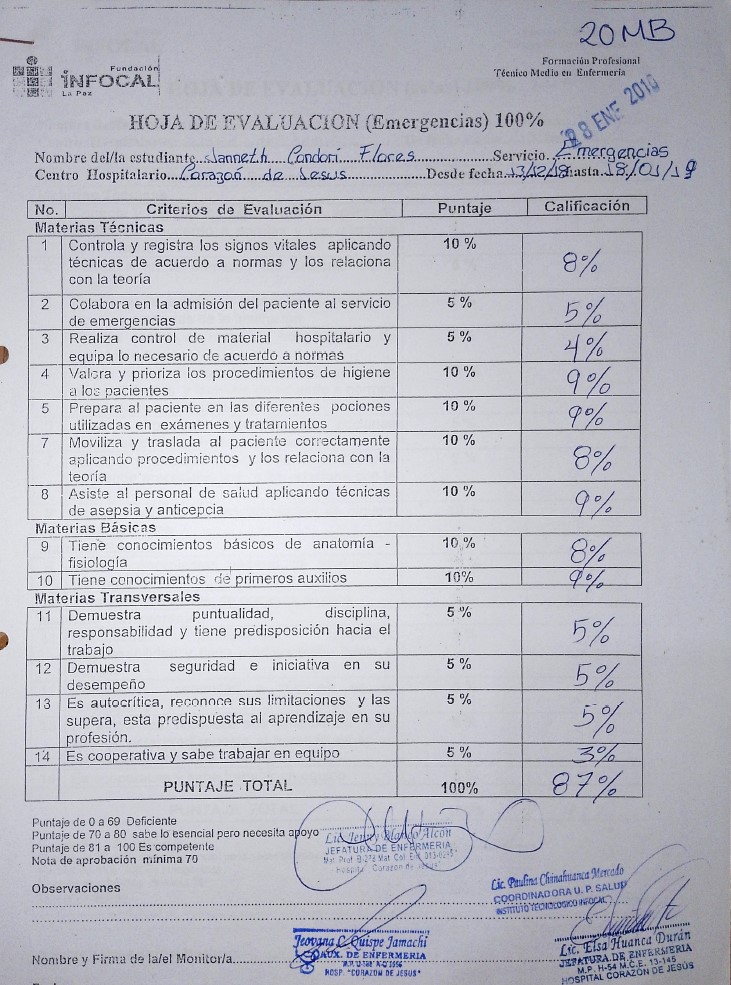 20 MB
Fundación
INFOCAL
La Paz
Formación Profesional
Técnico Medio en Enfermería
28 ENE 2019
HOJA DE EVALUACION (Emergencias) 100%
Nombre del/la estudiante Janneth Condori Flores Servicio Emergencias
Centro Hospitalario Corazón de Jesus Desde fecha 13/12/18 hasta 18/01/19
No. Criterios de Evaluación Puntaje Calificación
Materias Técnicas
1 Controla y registra los signos vitales aplicando 10 %
técnicas de acuerdo a normas y los relaciona 8%
con la teoría
2 Colabora en la admisión del paciente al servicio 5 % 5%
de emergencias
3 Realiza control de material hospitalario y 5 % 4%
equipa lo necesario de acuerdo a normas
4 Valora y prioriza los procedimientos de higiene 10 % 9%
a los pacientes
5 Prepara al paciente en las diferentes pociones 10 % 9%
utilizadas en exámenes y tratamientos
7 Moviliza y traslada al paciente correctamente 10 %
aplicando procedimientos y los relaciona con la 8%
teoría
8 Asiste al personal de salud aplicando técnicas 10 % 9%
de asepsia y anticepcia
Materias Básicas
9 Tiene conocimientos básicos de anatomía - 10 % 8%
fisiología
10 Tiene conocimientos de primeros auxilios 10% 9%
Materias Transversales
11 Demuestra puntualidad, disciplina, 5 %
responsabilidad y tiene predisposición hacia el 5%
trabajo
12 Demuestra seguridad e iniciativa en su 5 % 5%
desempeño
13 Es autocrítica, reconoce sus limitaciones y las 5 %
supera, esta predispuesta al aprendizaje en su 5%
profesión.
14 Es cooperativa y sabe trabajar en equipo 5 % 3%
PUNTAJE TOTAL 100% 87%
Puntaje de 0 a 69 Deficiente
Puntaje de 70 a 80 sabe lo esencial pero necesita apoyo
Puntaje de 81 a 100 Es competente
Nota de aprobación mínima 70
Lic. Jenny Blanco Alcón
JEFATURA DE ENFERMERIA
Hospital "Corazon de Jesus"
Observaciones
Lic. Paulina Chinahuanca Mercado
COORDINADORA U. P. SALUD
INSTITUTO TECNOLOGICO INFOCAL
Nombre y Firma de la/el Monitor/a
Jeovana C. Quispe Jamachi
AUX. DE ENFERMERIA
HOSP. "CORAZON DE JESUS"
Lic. Elsa Huanca Durán
JEFATURA DE ENFERMERIA
M.P. H-54 M.C.E. 13-145
HOSPITAL CORAZON DE JESUS